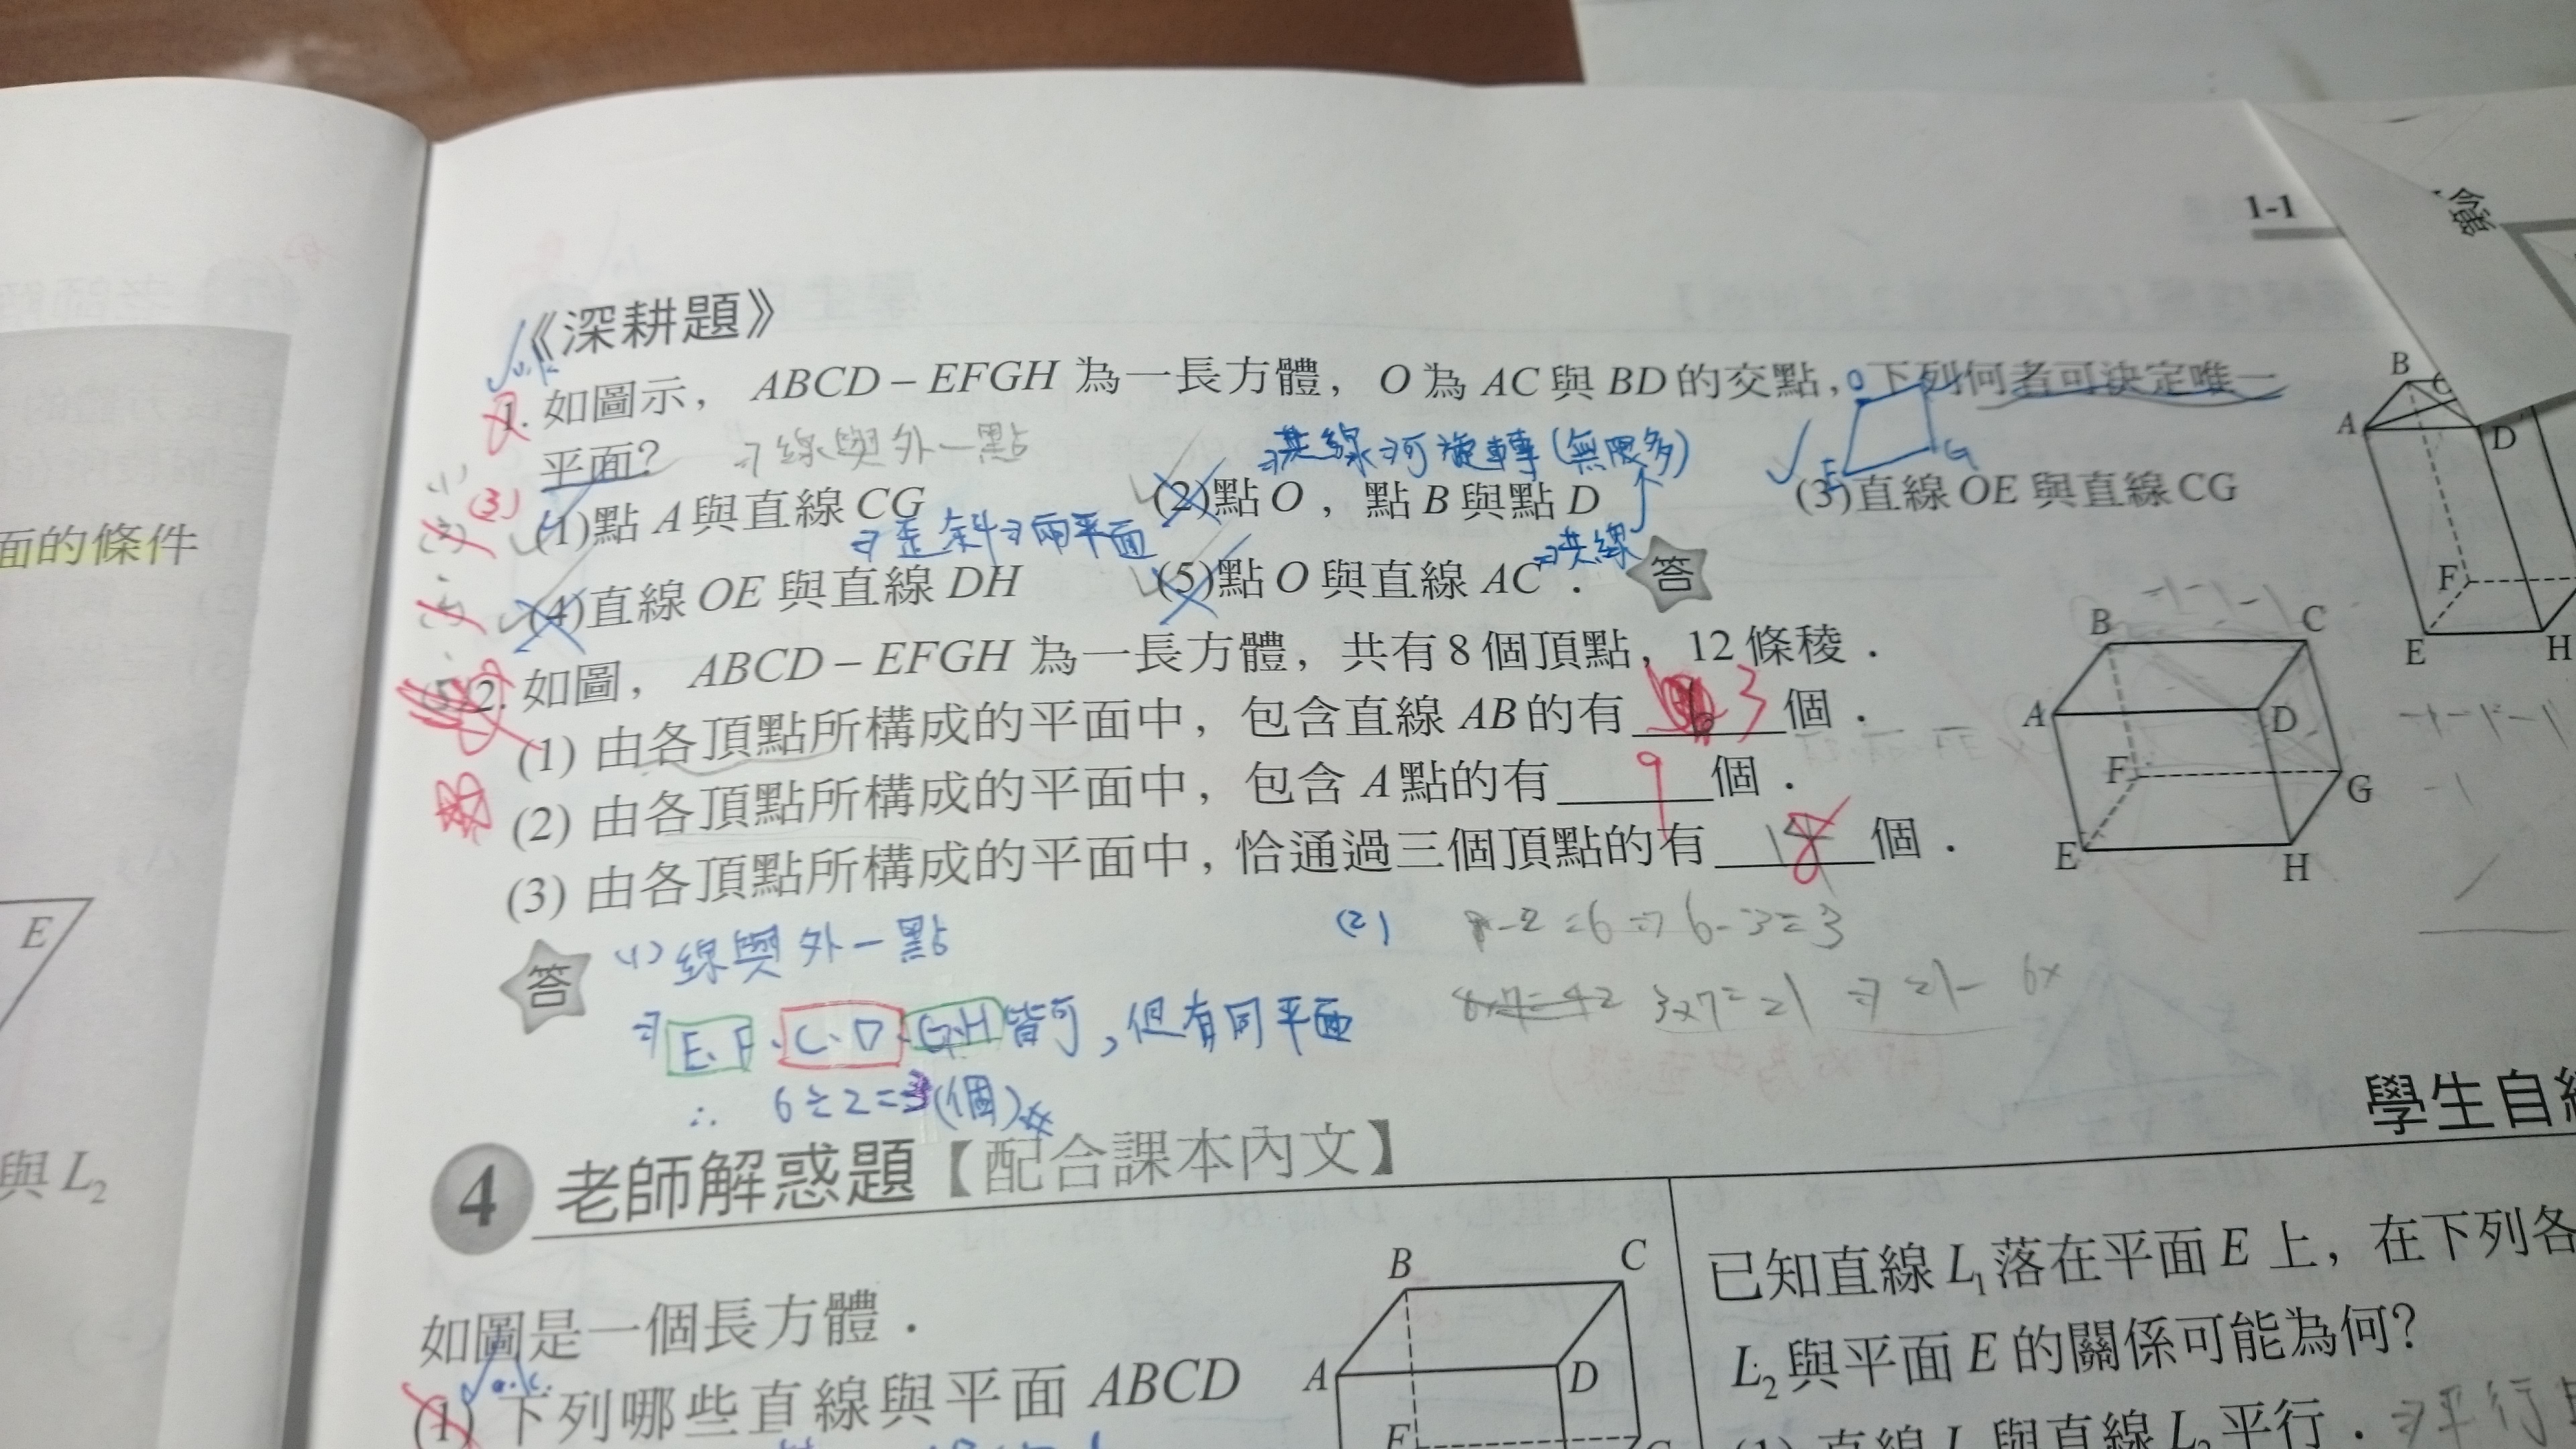 1-1
《深耕題》
1. 如圖示，ABCD－EFGH 為一長方體，O 為 AC 與 BD 的交點，下列何者可決定唯一
平面？ ⇒線與外一點
⇒共線⇒可旋轉(無限多)
(3)
(1)點 A 與直線 CG (2)點 O，點 B 與點 D (3)直線 OE 與直線 CG
⇒歪斜⇒兩平面 ⇒共線
(4)直線 OE 與直線 DH (5)點 O 與直線 AC． 答
2. 如圖，ABCD－EFGH 為一長方體，共有 8 個頂點，12 條稜．
(1) 由各頂點所構成的平面中，包含直線 AB 的有 3 個．
(2) 由各頂點所構成的平面中，包含 A 點的有 9 個．
(3) 由各頂點所構成的平面中，恰通過三個頂點的有 8 個．
B
C
A
D
F
E
H
B
C
A
D
F
G
E
H
答 (1) 線與外一點
⇒ E、F、C、D、G、H 皆可，但有同平面
∴ 6÷2=3(個)#
(2) 8-2=6 ⇒ 6-3=3
3×7=21 ⇒ 21-
學生自
4 老師解惑題【配合課本內文】
如圖是一個長方體．
(1) 下列哪些直線與平面 ABCD
B
C
A
D
F
已知直線 L₁ 落在平面 E 上，在下列各
L₂ 與平面 E 的關係可能為何？
(1) 直線 L₁ 與直線 L₂ 平行．⇒平行
面的條件
E
與 L₂